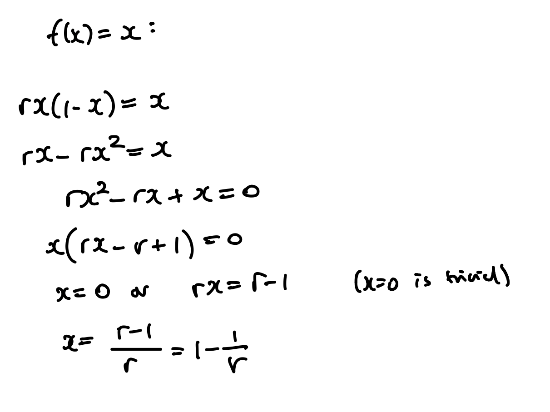 f(x) = x :
rx(1-x) = x
rx - rx² = x
rx² - rx + x = 0
x(rx - r + 1) = 0
x=0 or rx = r-1 (x=0 is trivial)
x = (r-1)/r = 1 - 1/r